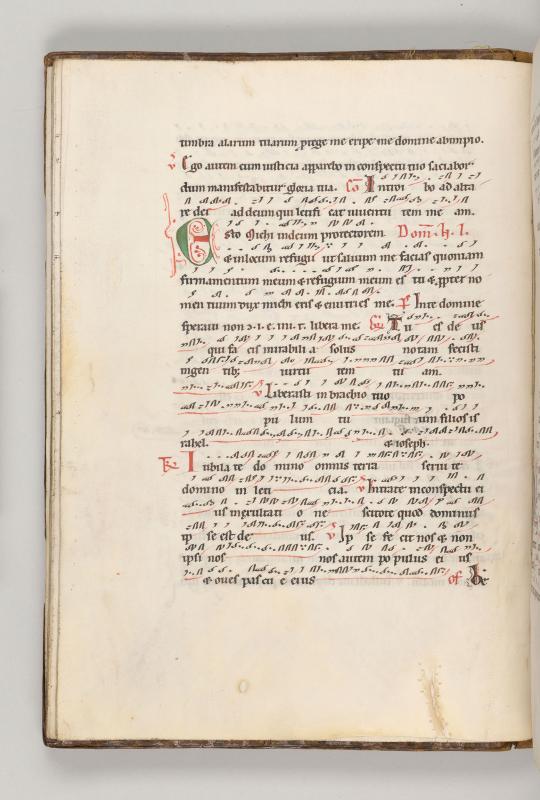 umbra alarum tuarum ptege me eripe me domine abimpio.
v Ego autem cum iusticia apparebo in conspectu tuo saciabor
dum manifestabitur gloria tua. Co Introi bo ad alta
re dei ad deum qui letifi cat iuuentu tem me am.
Esto Michi indeum protectorem. Dom
& inlocum refugii ut saluum me facias quoniam
firmamentum meum & refugium meum es tu & ppter no
men tuum dux michi eris & enutries me. p Inte domine
speraui non libera me. Tu es de us
qui fa cis mirabili a solus notam fecisti
ingen tib; uirtu tem tu am.
v Liberasti in brachio tuo po
pu lum tu um filios is
rahel. & ioseph.
Tr Iubila te do mino omnis terra serui te
domino in leti cia. v Intrate inconspectu ei
us inexultati o ne scitote quod dominus
ip se est de us. v Ip se fe cit nos & non
ipsi nos nos autem po pulus ei us
& oues pascu e eius of Be